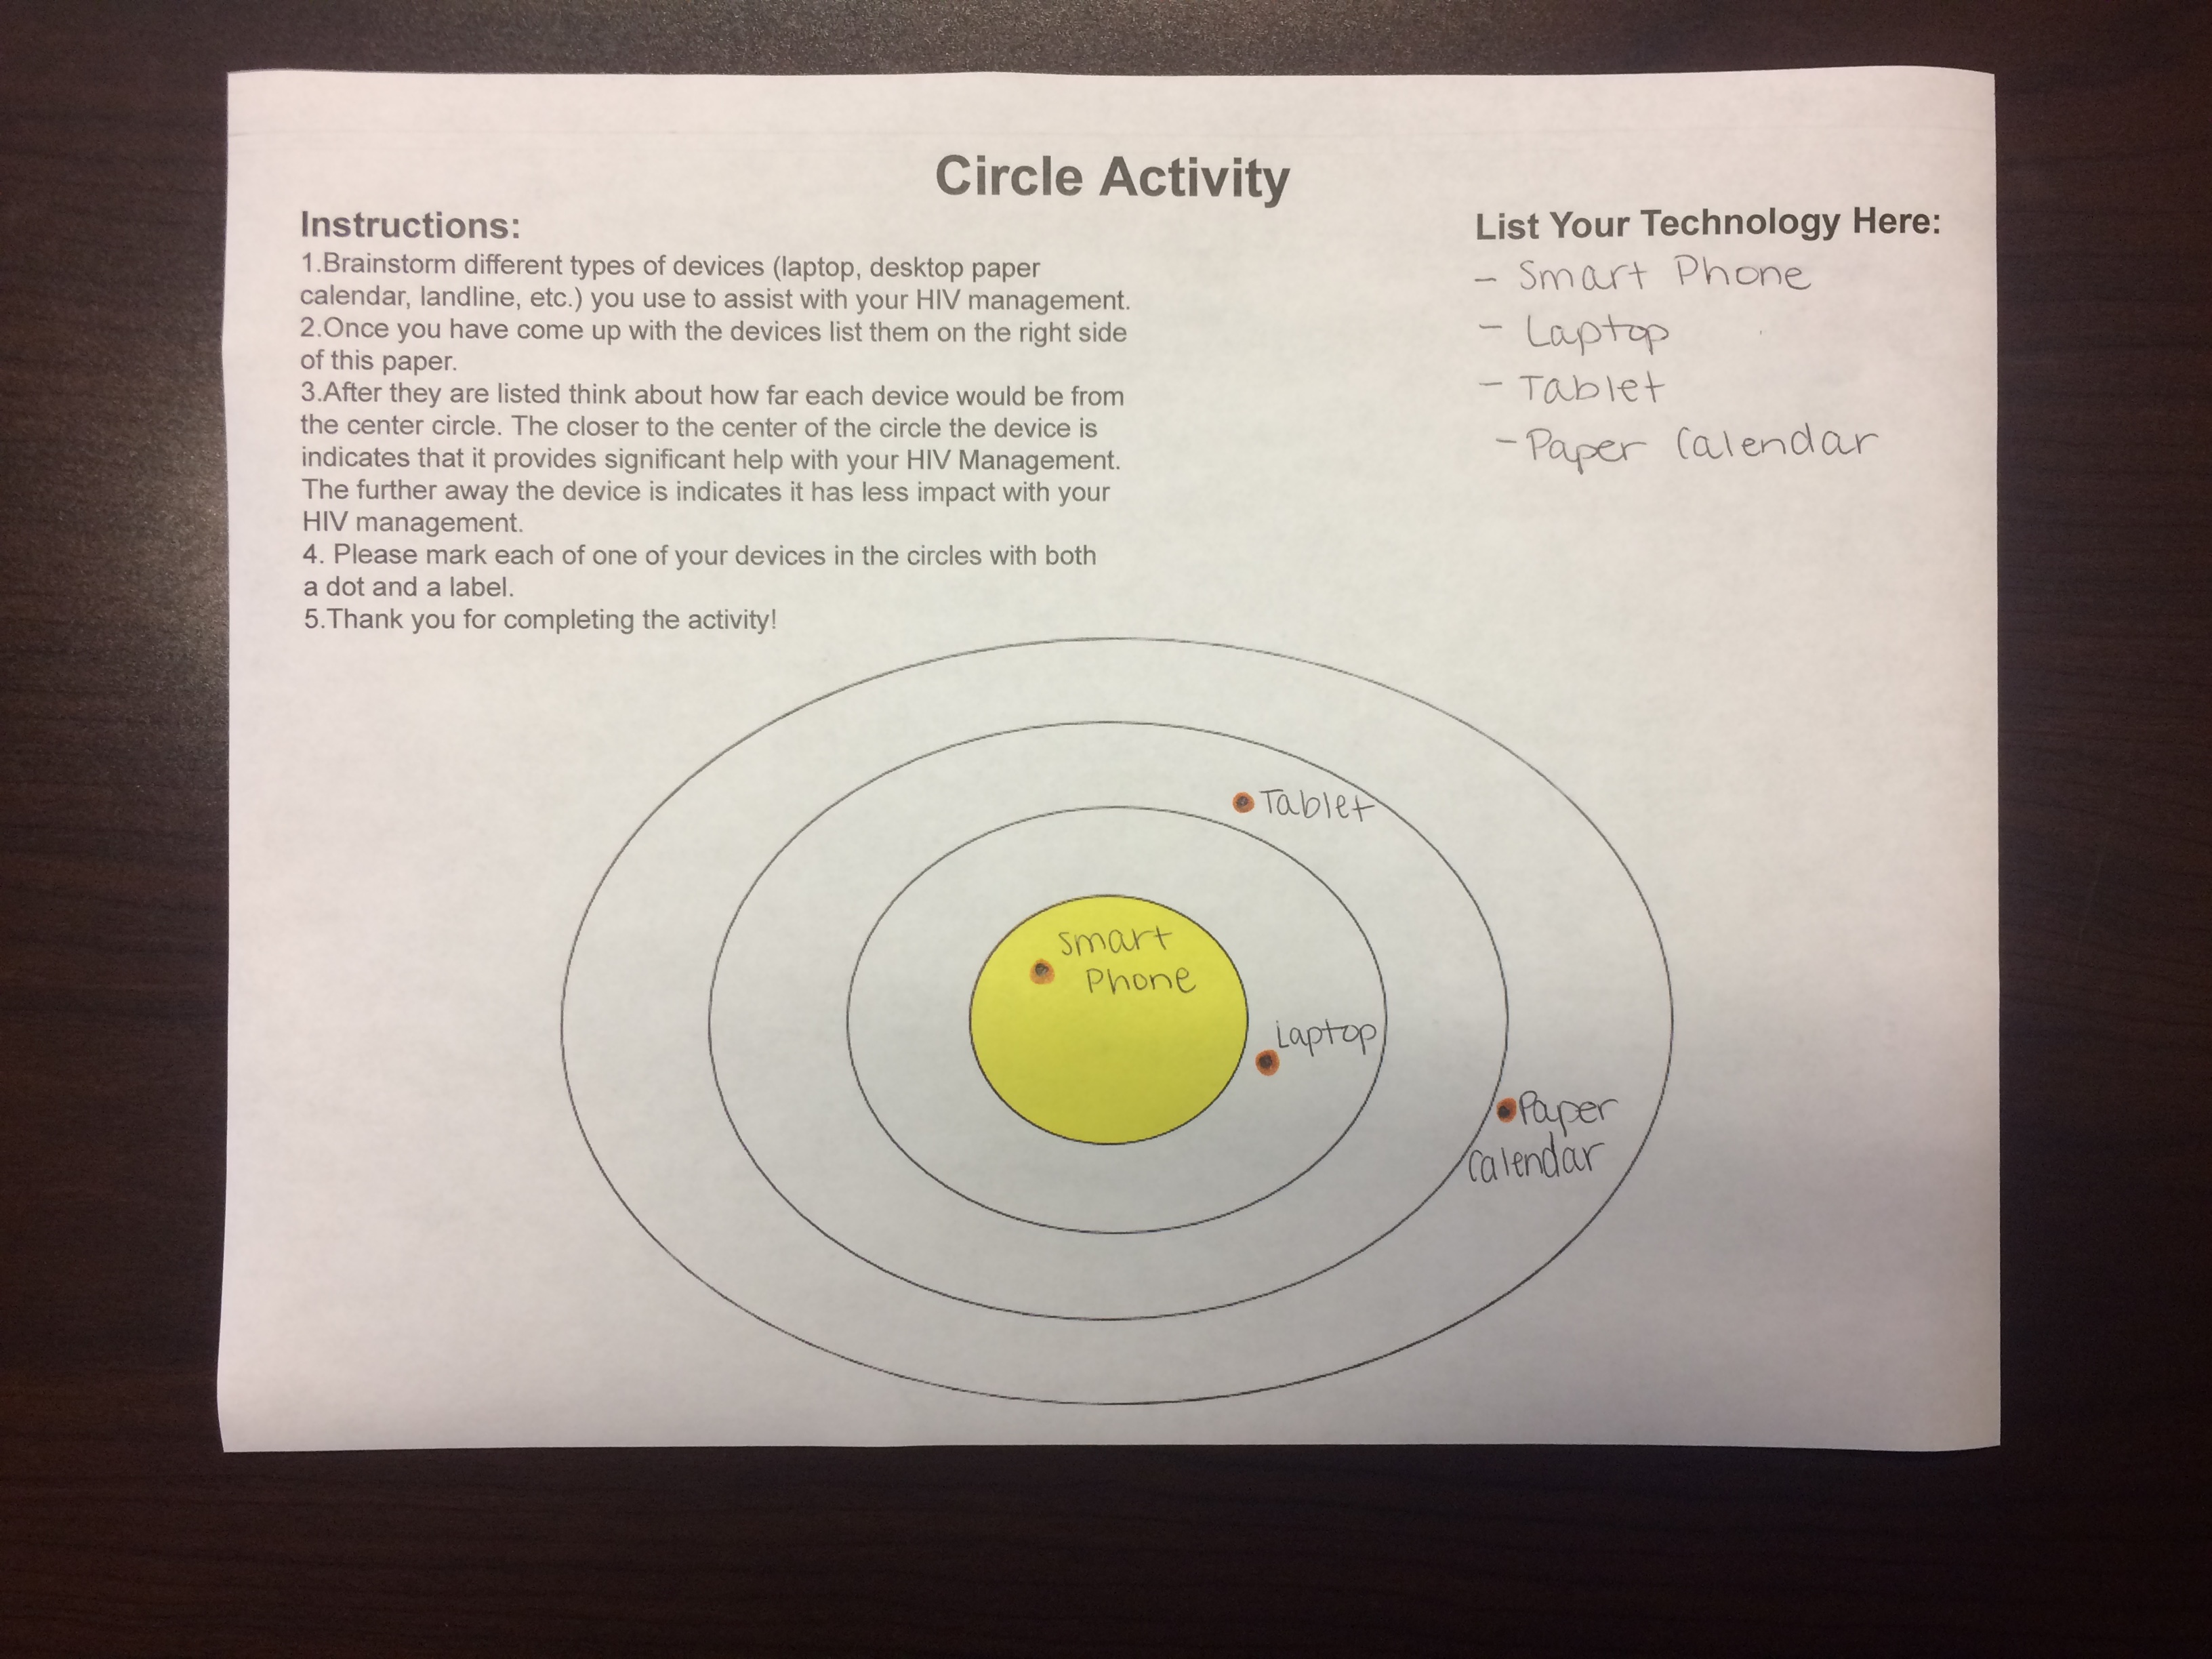 Circle Activity
Instructions:
1.Brainstorm different types of devices (laptop, desktop paper
calendar, landline, etc.) you use to assist with your HIV management.
2.Once you have come up with the devices list them on the right side
of this paper.
3.After they are listed think about how far each device would be from
the center circle. The closer to the center of the circle the device is
indicates that it provides significant help with your HIV Management.
The further away the device is indicates it has less impact with your
HIV management.
4. Please mark each of one of your devices in the circles with both
a dot and a label.
5.Thank you for completing the activity!
List Your Technology Here:
- Smart Phone
- Laptop
- Tablet
- Paper Calendar
Tablet
Smart
Phone
Laptop
Paper
Calendar